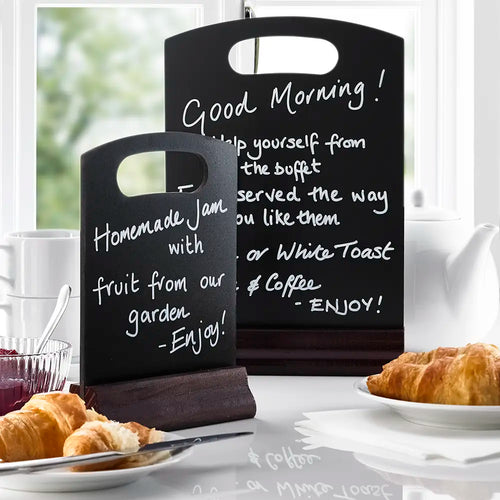 Good Morning!
Help yourself from
the buffet
served the way
you like them
or White Toast
& Coffee
- ENJOY!
Homemade Jam
with
fruit from our
garden
- Enjoy!